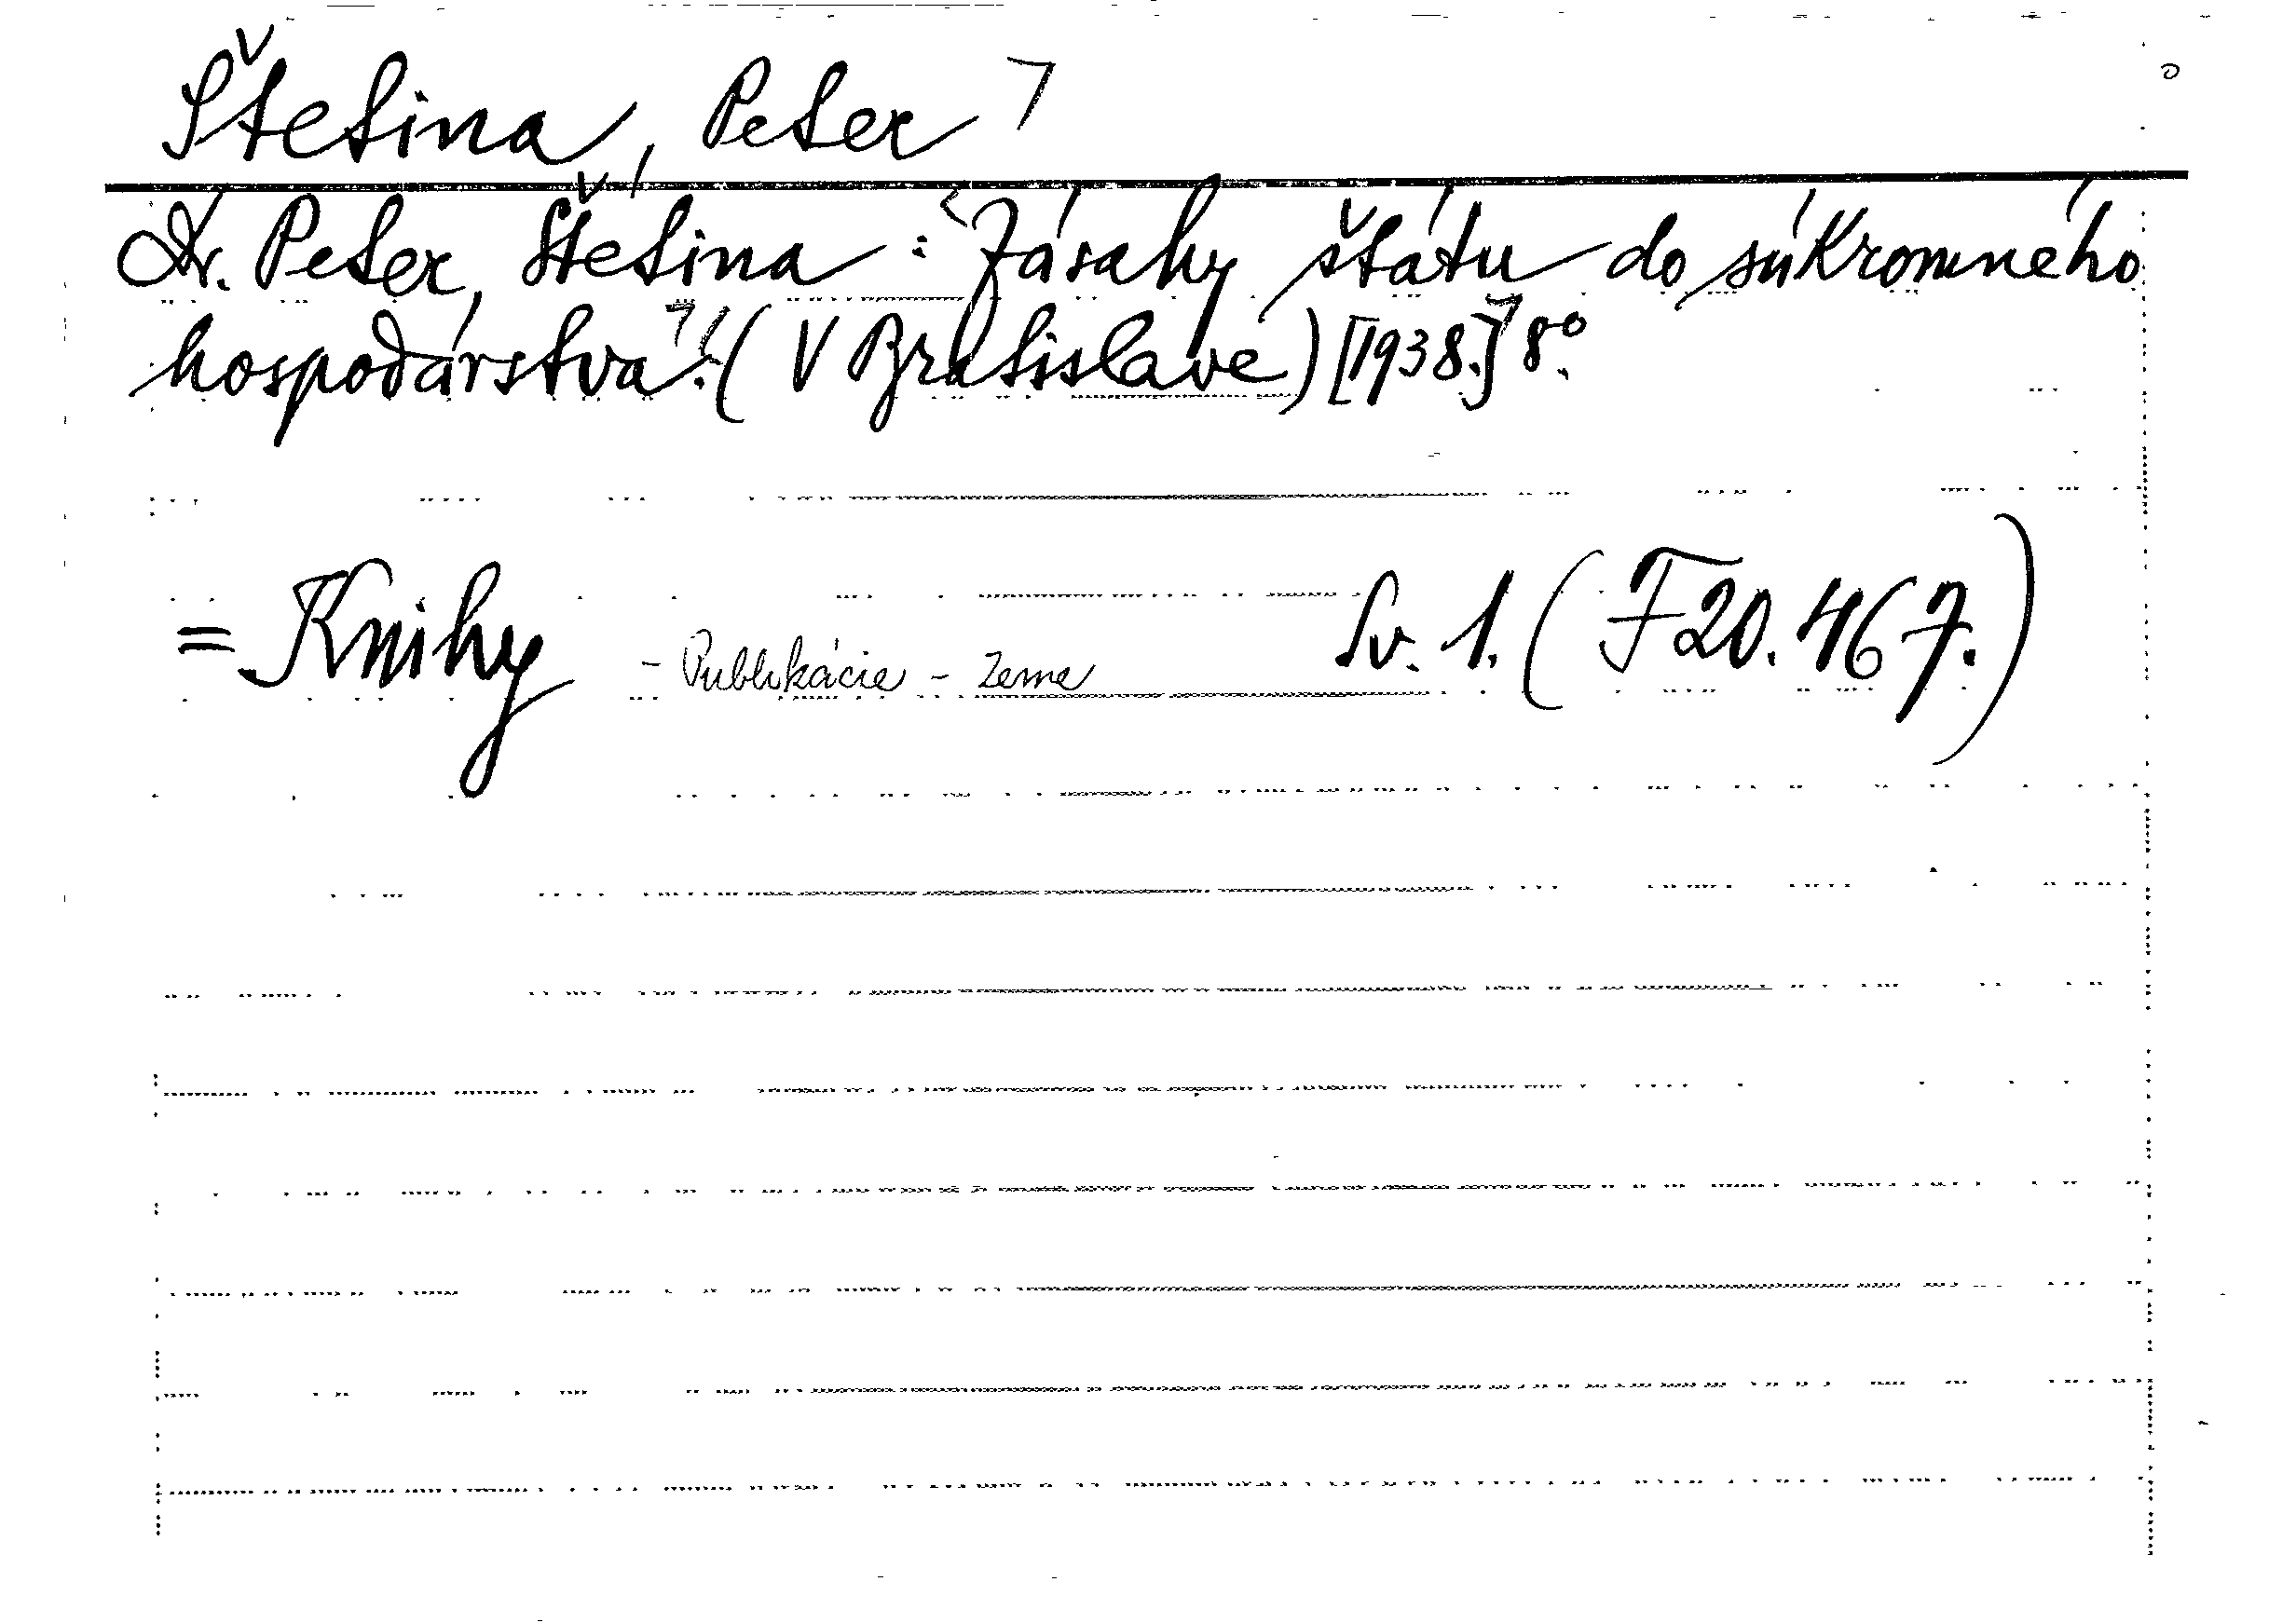 Štetina, Peter
Dr. Peter Štetina: Zásahy štátu do súkromného
hospodárstva. (V Bratislave) [1938.] 8°.
= Knihy - Publikácie - Zeme Sv. 1. (F 20.467.)